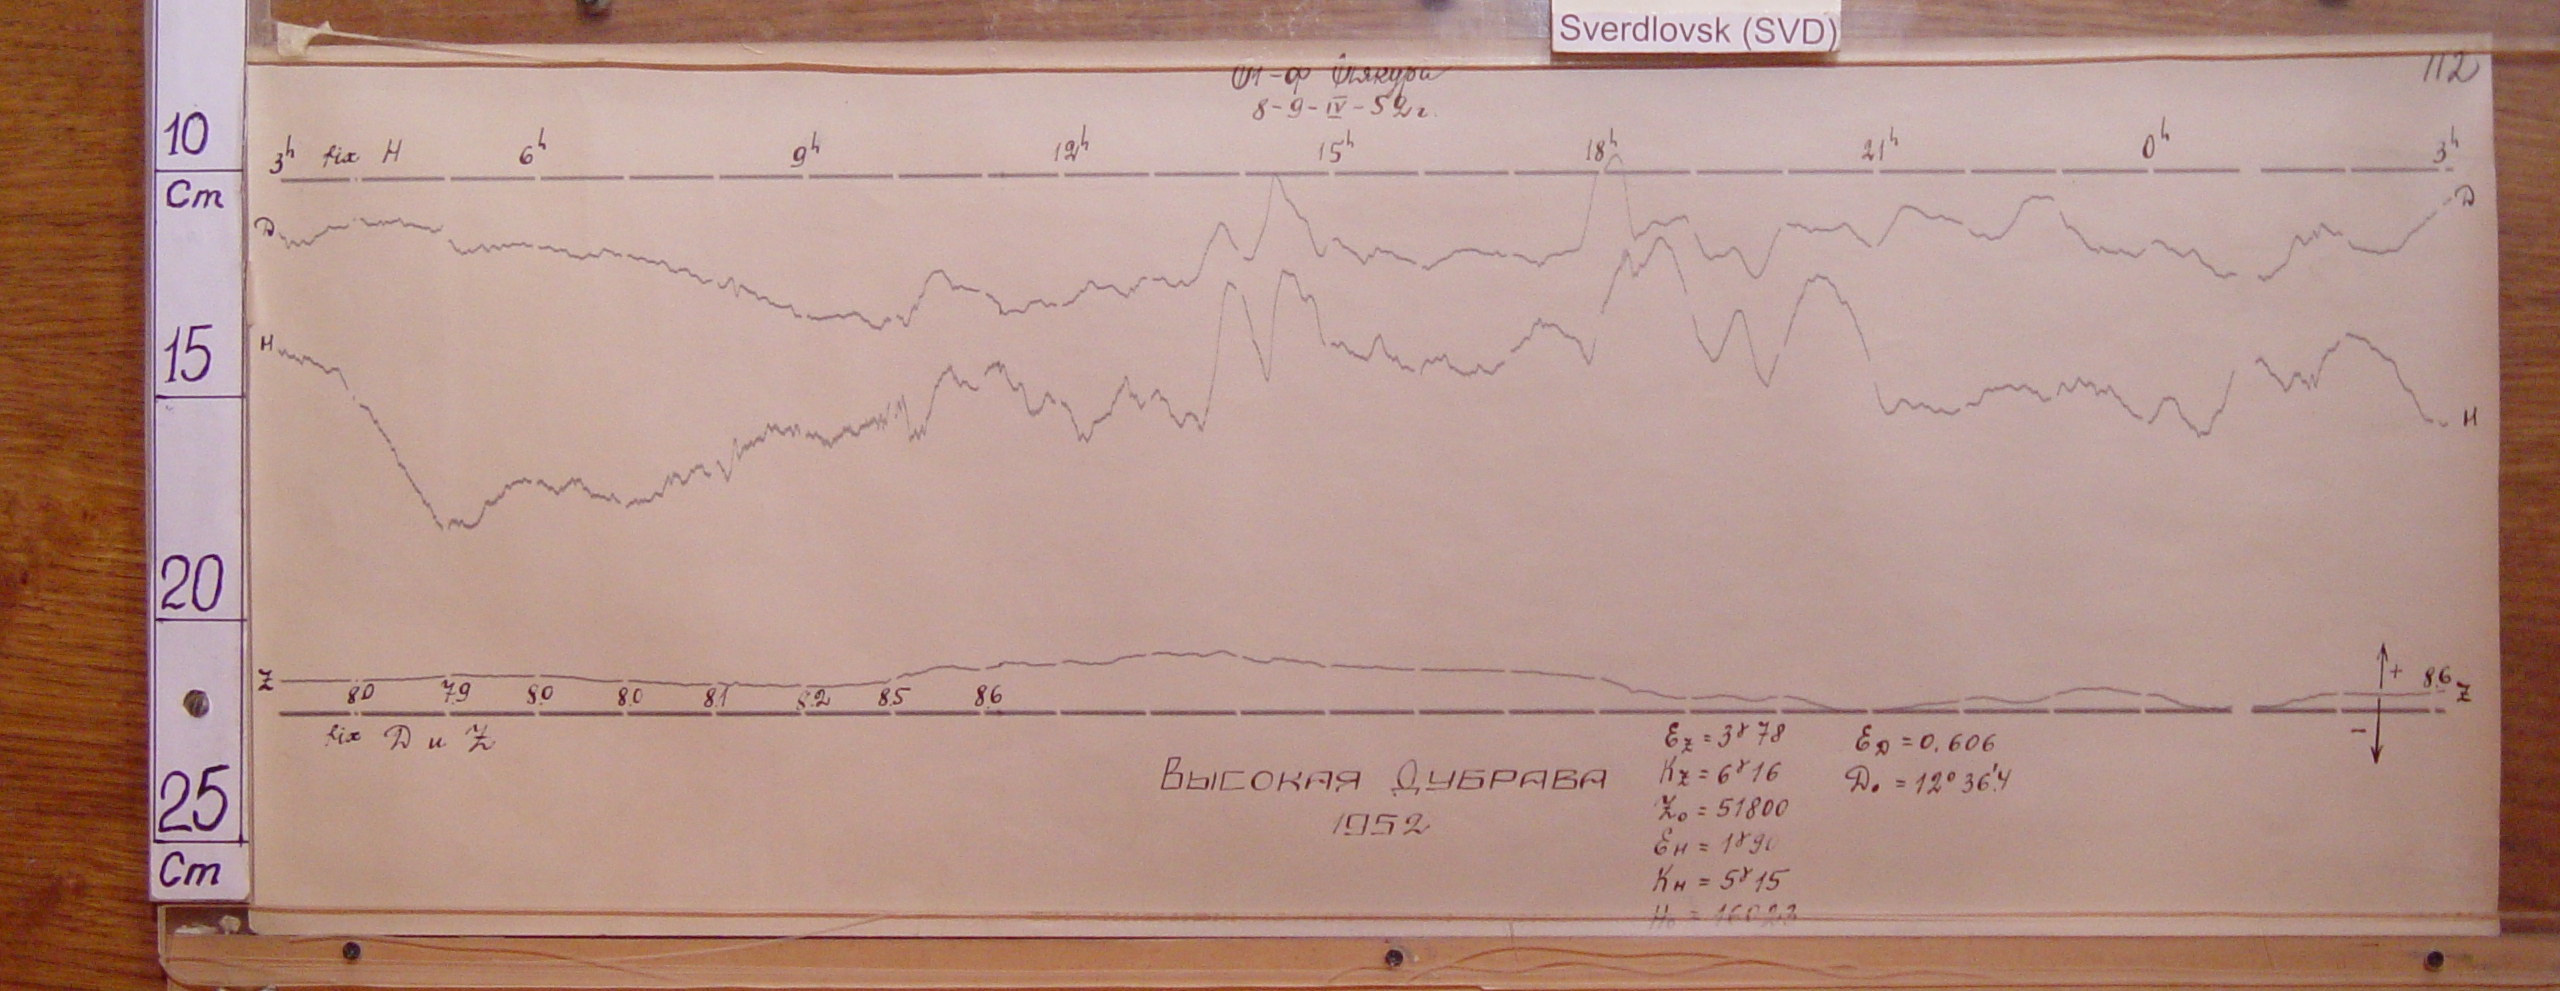 Sverdlovsk (SVD)
112
8-9-IV-52г.
10
Cm
15
20
25
Cm
3h fix H 6h 9h 12h 15h 18h 21h 0h 3h
D D
H H
Z 8.0 7.9 8.0 8.0 8.1 8.2 8.5 8.6 + 8.6 Z
fix D и Z −
ВЫСОКАЯ ДУБРАВА
1952
Ez = 3γ78
Kz = 6γ16
Z₀ = 51800
Eн = 1γ90
Kн = 5γ15
ED = 0.606
D₀ = 12° 36'.4